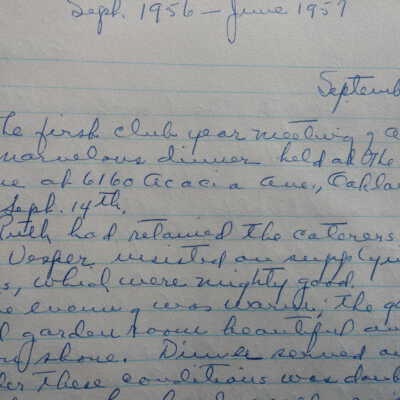 Sept. 1956 – June 1957
Septemb
he first club year meeting of a
marvelous dinner held at the
e at 6160 Acacia Ave., Oakla
Sept. 14th.
Ruth had retained the caterers
Vesper insisted on supplyin
s, which were mighty good.
e evening was warm; the g
garden room beautiful an
shone. Dinner served o
der these conditions was doub